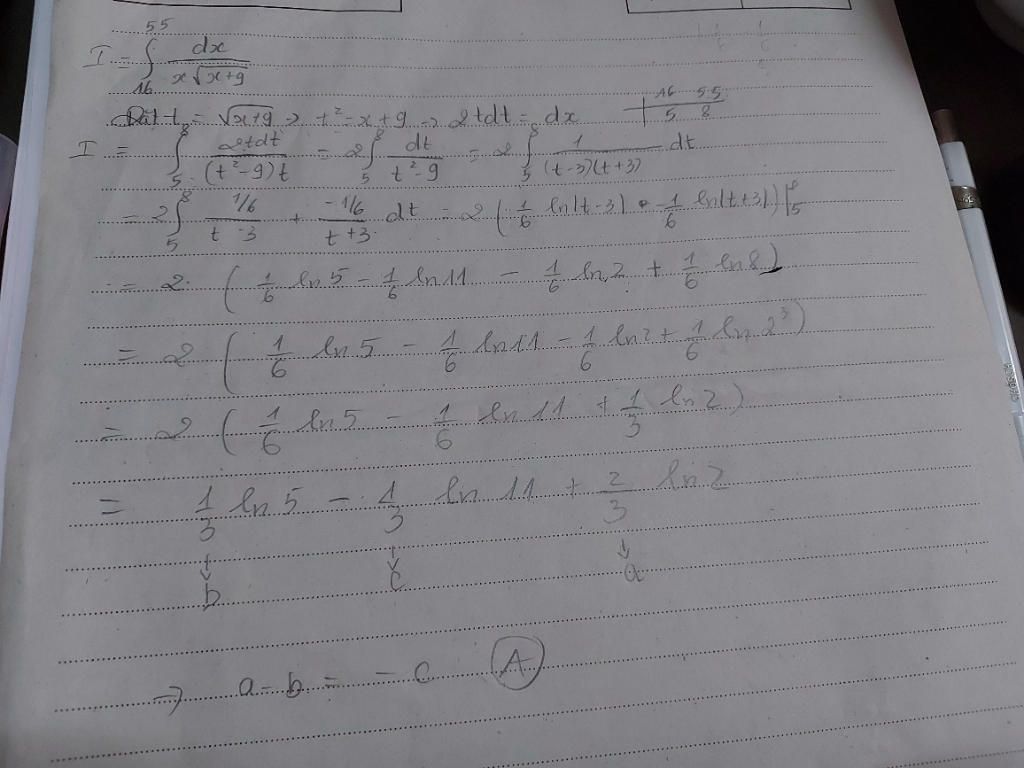 I = ∫₁₆⁵⁵ dx / (x√(x+9))
Đặt t = √(x+9) → t² = x+9 → 2tdt = dx | 16 55 / 5 8
I = ∫₅⁸ 2tdt / ((t²-9)t) = 2∫₅⁸ dt / (t²-9) = 2∫₅⁸ 1 / ((t-3)(t+3)) dt
= 2∫₅⁸ (1/6)/(t-3) + (-1/6)/(t+3) dt = 2 (1/6 ln|t-3| + -1/6 ln|t+3|)|₅⁸
= 2. (1/6 ln5 - 1/6 ln11 - 1/6 ln2 + 1/6 ln8)
= 2 (1/6 ln5 - 1/6 ln11 - 1/6 ln2 + 1/6 ln2³)
= 2 (1/6 ln5 - 1/6 ln11 + 1/3 ln2)
= 1/3 ln5 - 1/3 ln11 + 2/3 ln2
↓ ↓ ↓
b c a
→ a - b = - c (A)